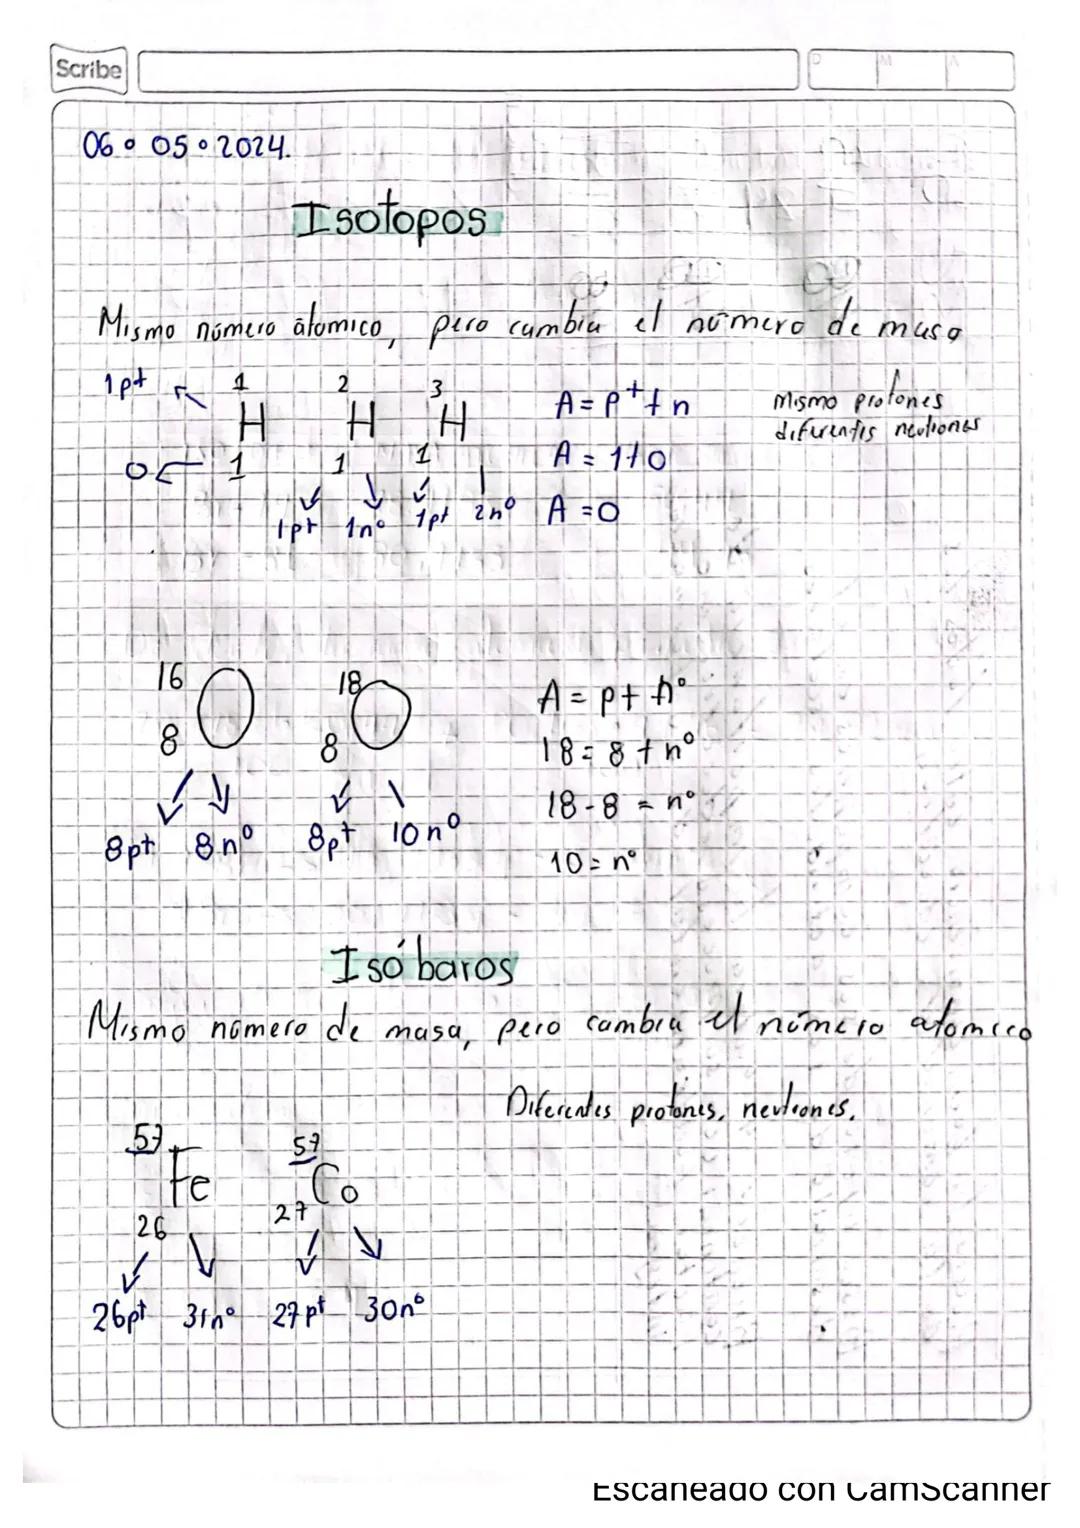 Scribe
D M A
06 • 05 • 2024.
Isotopos
Mismo número átomico, pero cambia el número de masa
1p+ 1 H 1 0
2 H 1 1p+ 1n°
3 H 1 1p+ 2n°
A = p+ + n
A = 1+0
A = 0
Mismo protones
diferentes neutrones
16 O 8 8p+ 8n°
18 O 8 8p+ 10n°
A = p+ n°
18 = 8 + n°
18-8 = n°
10 = n°
Isóbaros
Mismo número de masa, pero cambia el número atomico
Diferentes protones, neutrones.
57 Fe 26 26p+ 31n°
57 Co 27 27p+ 30n°
Escaneado con CamScanner